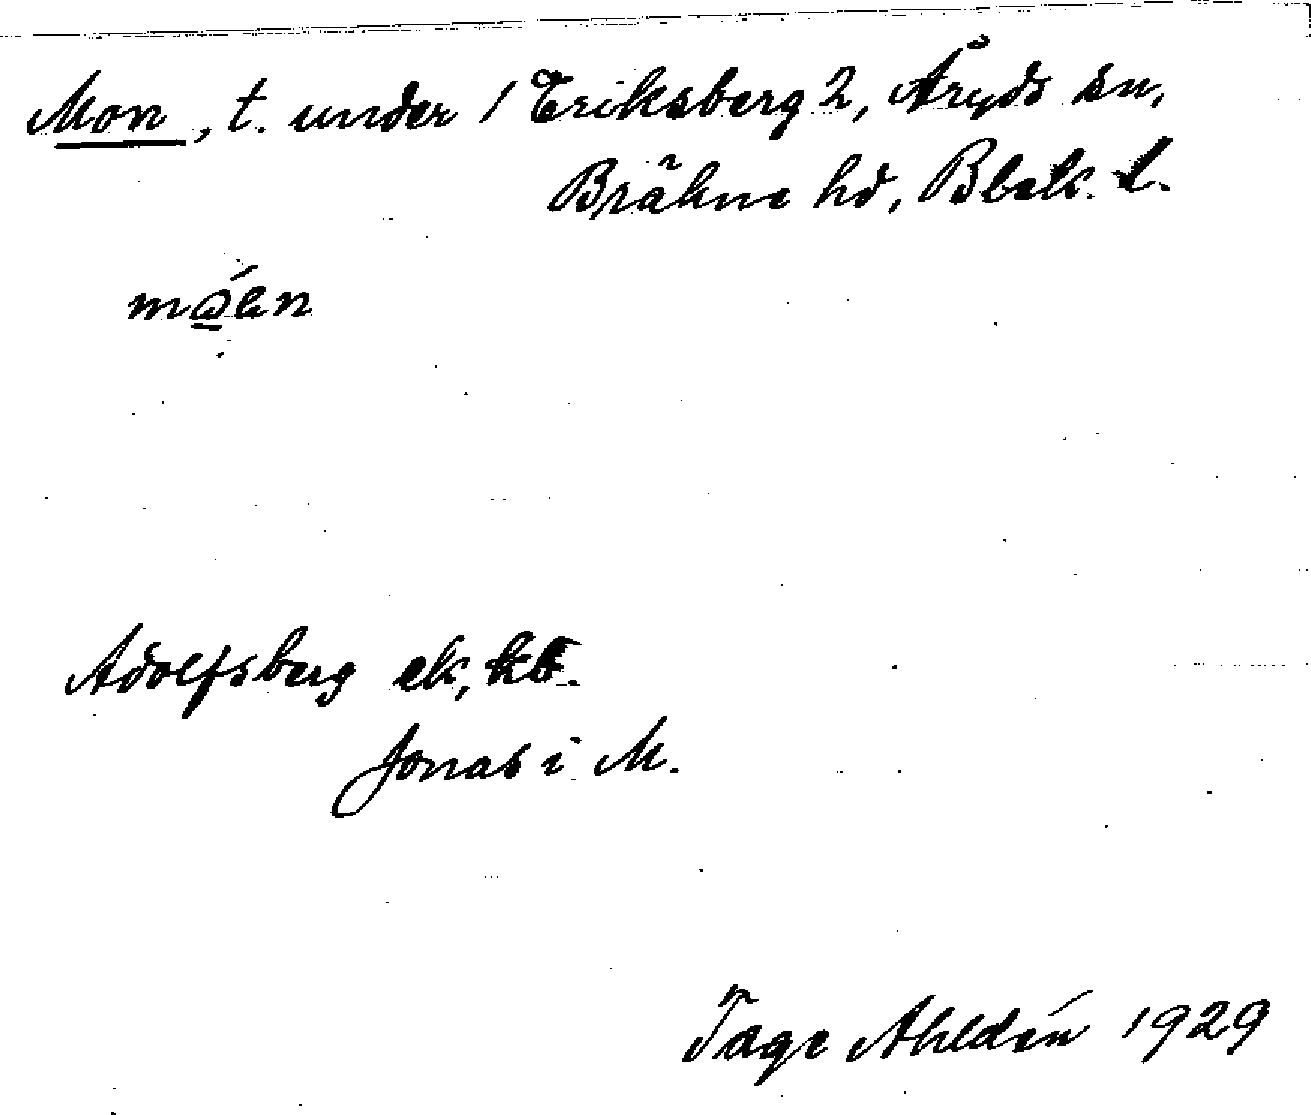 Mon, t. under 1 Eriksberg 2, Åryds sn,
Bräkne hd, Blek. l.
Adolfsberg ek,
Jonas i M.
Tage Ahldén 1929